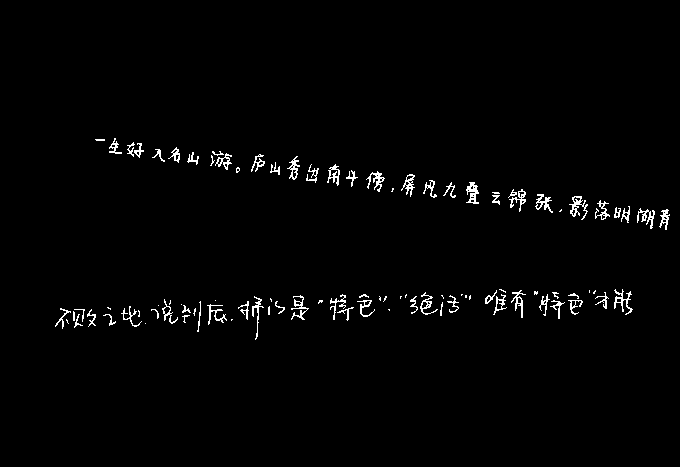 一生好入名山游。庐山秀出南斗傍,屏风九叠云锦张,影落明湖青
不败之地.说到底.拼的是"特色"、"绝活"唯有"特色"才能